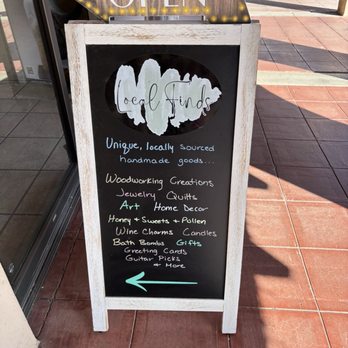 OPEN
Local Finds
Unique, locally sourced
handmade goods...
Woodworking Creations
Jewelry Quilts
Art Home Decor
Honey + Sweets + Pollen
Wine Charms Candles
Bath Bombs Gifts
Greeting Cards
Guitar Picks
+ More